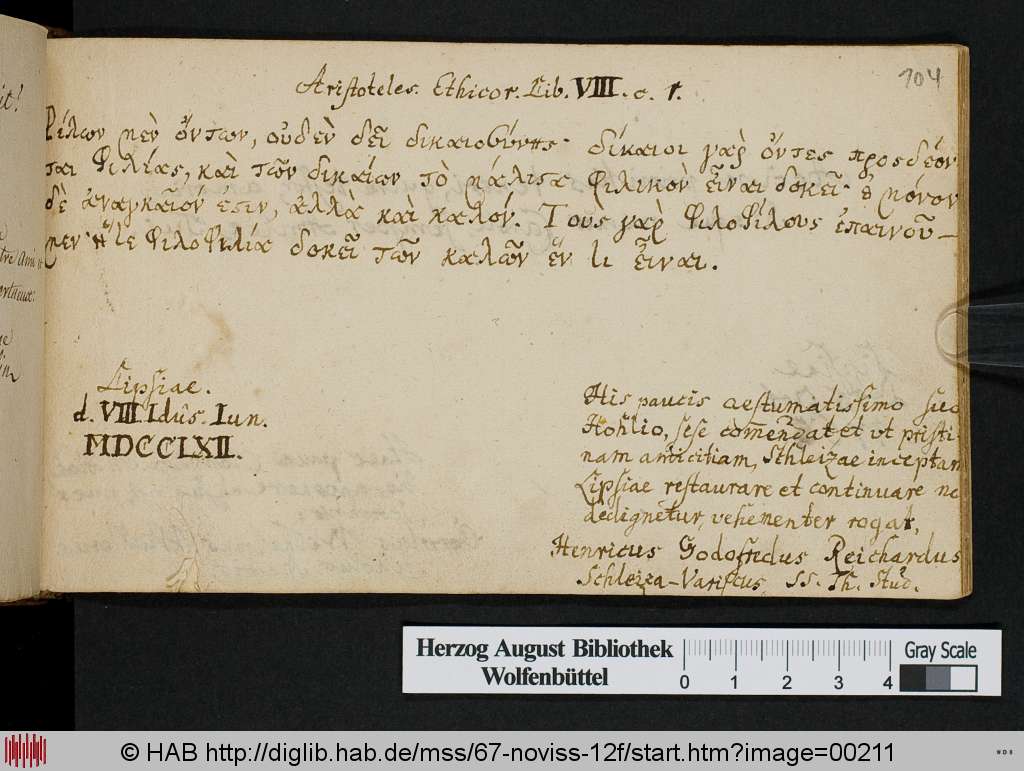 704
Aristoteles. Ethicor. Lib. VIII. c. 1.
Φίλων μὲν ὄντων, οὐδὲν δεῖ δικαιοσύνης· δίκαιοι γὰρ ὄντες προσδέον-
ται φιλίας, καὶ τῶν δικαίων τὸ μάλιστα φιλικὸν εἶναι δοκεῖ· οὐ μόνον
δὲ ἀναγκαῖόν ἐστιν, ἀλλὰ καὶ καλόν. Τοὺς γὰρ φιλοφίλους ἐπαινοῦ-
μεν· ἥ τε φιλοφιλία δοκεῖ τῶν καλῶν ἕν τι εἶναι.
Lipsiae.
d. VIII Idus. Iun.
MDCCLXII.
His paucis aestumatissimo suo
Hohlio, sese comendat et vt pristi-
nam amicitiam, Schleizae inceptam
Lipsiae restaurare et continuare ne
dedignetur, vehementer rogat,
Henricus Godofredus Reichardus
Schleiza-Variscus, SS. Th. Stud.
it!
Herzog August Bibliothek
Wolfenbüttel
0 1 2 3 4
Gray Scale
© HAB http://diglib.hab.de/mss/67-noviss-12f/start.htm?image=00211